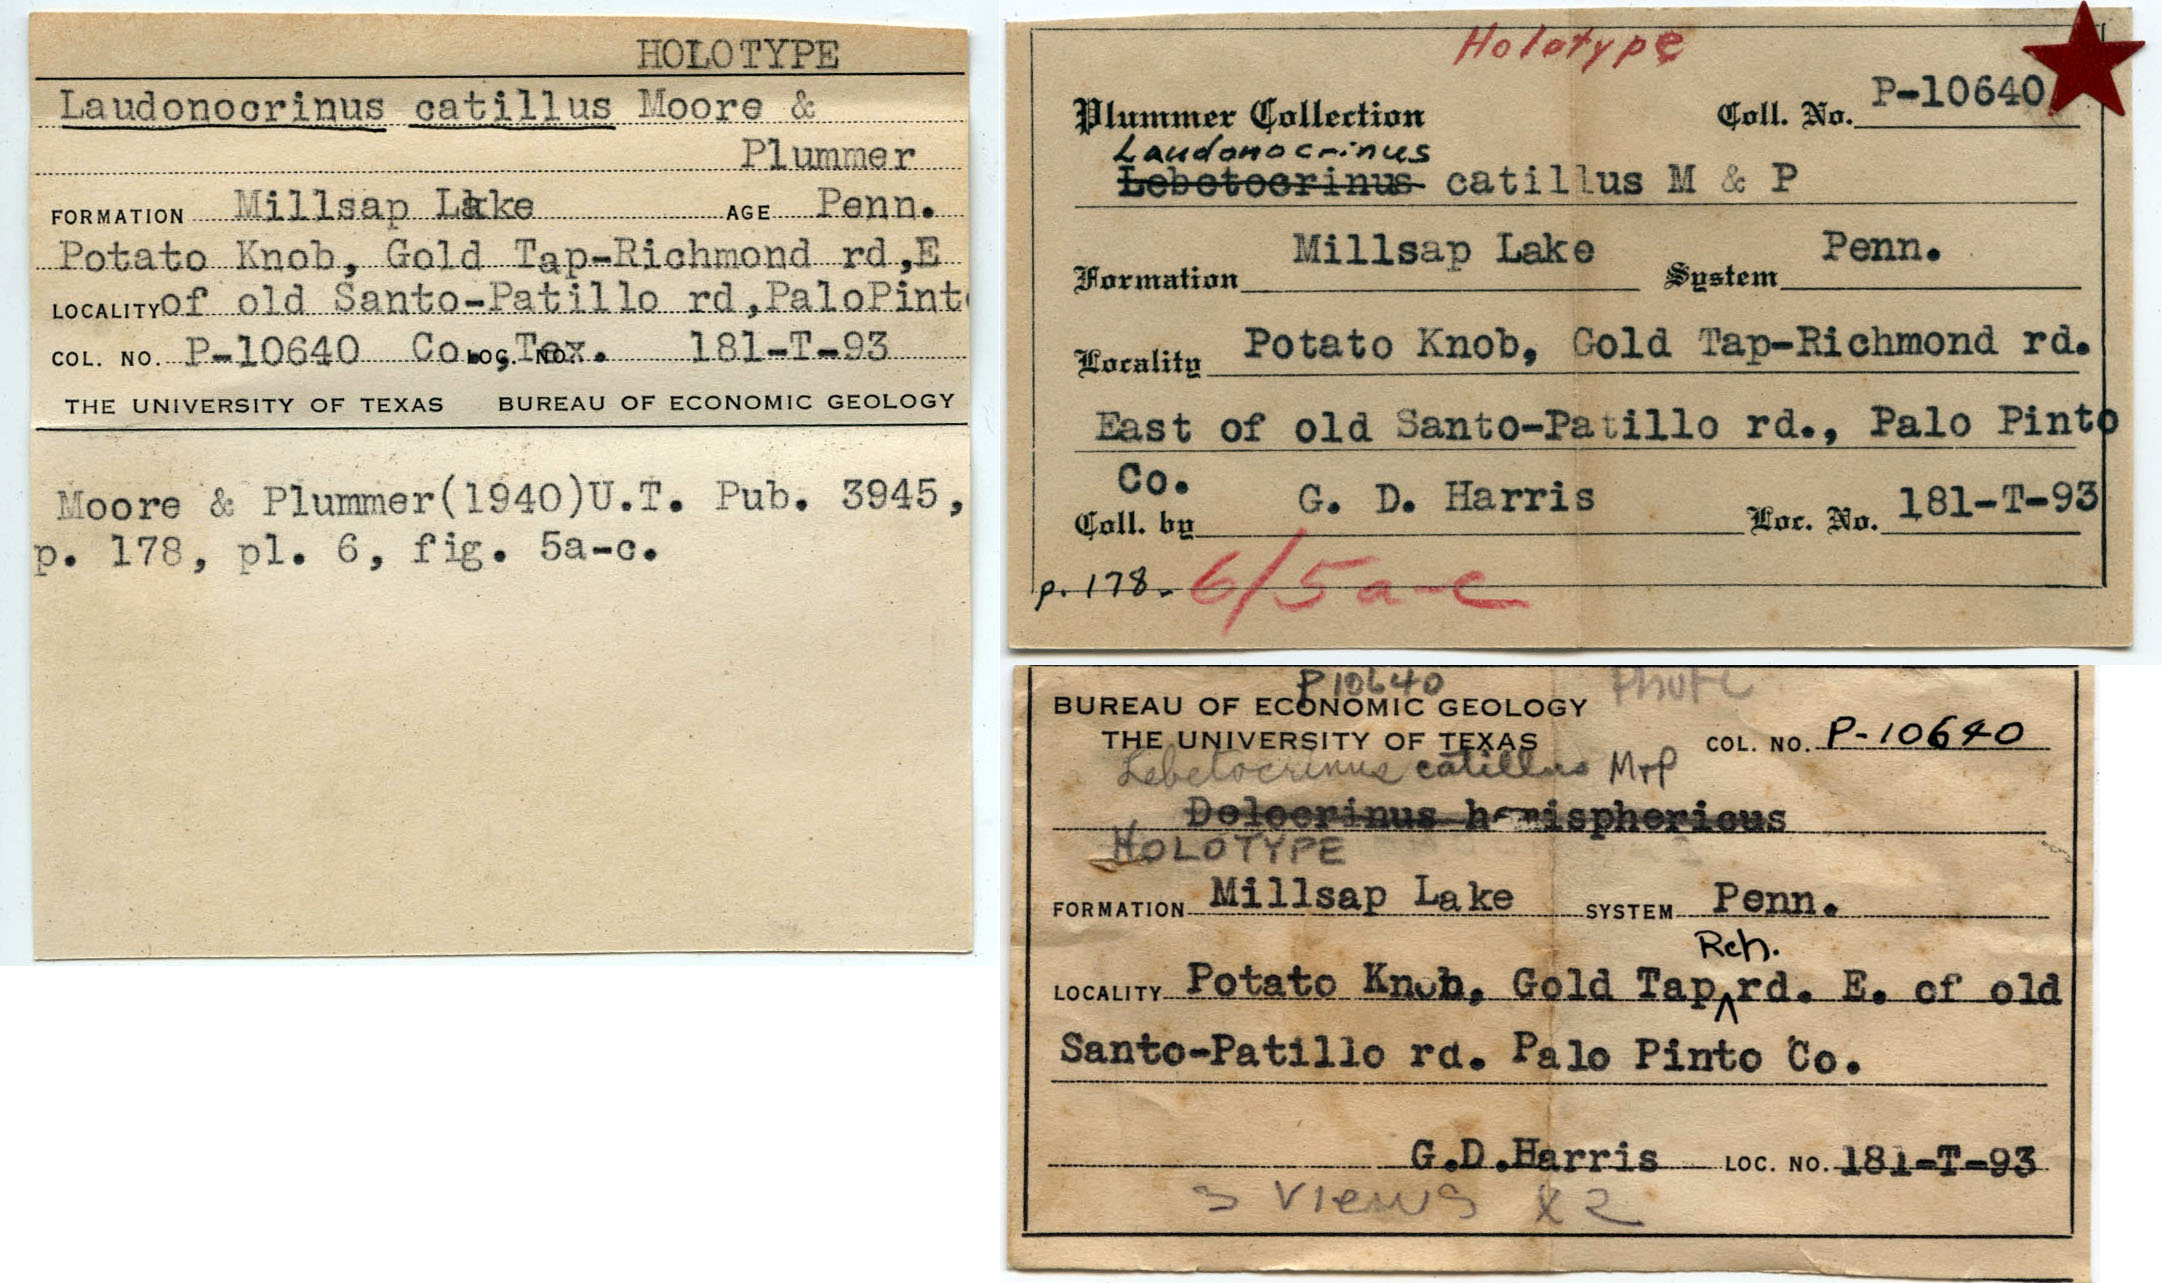 HOLOTYPE
Laudonocrinus catillus Moore &
Plummer
FORMATION Millsap Lake AGE Penn.
Potato Knob, Gold Tap-Richmond rd,E
LOCALITY of old Santo-Patillo rd,PaloPinto
COL. NO. P-10640 Co., Tex. LOC. NO. 181-T-93
THE UNIVERSITY OF TEXAS BUREAU OF ECONOMIC GEOLOGY
Moore & Plummer(1940)U.T. Pub. 3945,
p. 178, pl. 6, fig. 5a-c.
Holotype
Plummer Collection Coll. No. P-10640
Laudonocrinus
Lebetocrinus catillus M & P
Formation Millsap Lake System Penn.
Locality Potato Knob, Gold Tap-Richmond rd.
East of old Santo-Patillo rd., Palo Pinto
Co.
Coll. by G. D. Harris Loc. No. 181-T-93
p. 178. 6/5a-c
P10640 Photo
BUREAU OF ECONOMIC GEOLOGY
THE UNIVERSITY OF TEXAS COL. NO. P-10640
Lebetocrinus catillus M+P
Delocrinus hemisphericus
HOLOTYPE
FORMATION Millsap Lake SYSTEM Penn.
Rch.
LOCALITY Potato Knob, Gold Tap rd. E. of old
Santo-Patillo rd. Palo Pinto Co.
G.D.Harris LOC. NO. 181-T-93
3 views x2